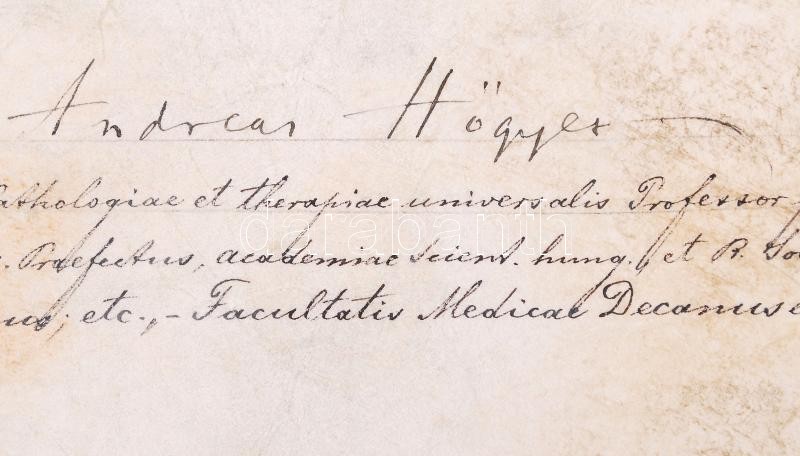 Andreas Hőgyes
athologiae et therapiae universalis Professor
Praefectus, academiae scient. hung., et R. So
us, etc., – Facultatis Medicae Decanus e
darabanth